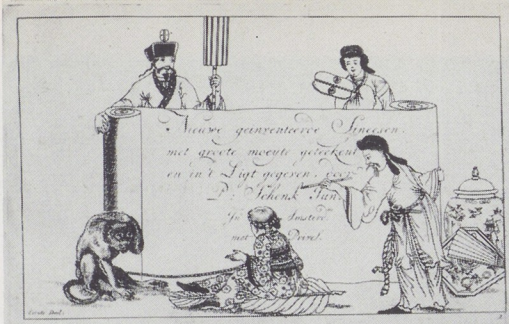 Nieuwe geinventeerde Sineesen.
met groote moeyte geteekent
en in't Ligt gegeven. door
P: Schenk Jun:
In Amsterd:
met Privil.